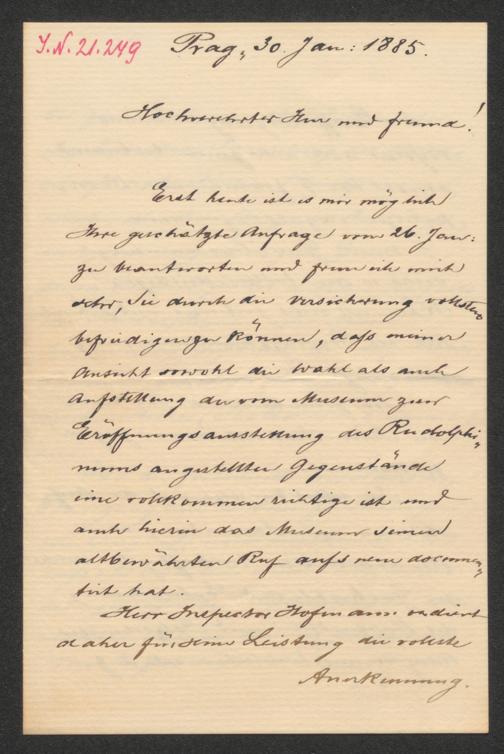 J.N. 21.249
Prag, 30. Jan: 1885.
Hochverehrter Herr und Freund!
Erst heute ist es mir möglich
Ihre geschätzte Anfrage vom 26. Jan:
zu beantworten und freue ich mich
sehr, Sie durch die Versicherung vollstens
befriedigen zu können, daß meiner
Ansicht sowohl die Wahl als auch
Aufstellung der vom Museum zur
Eröffnungsausstellung des Rudolphi„
nums angestellten Gegenstände
eine vollkommen richtige ist und
auch hierin das Museum seinen
altbewährten Ruf aufs neue documen„
tirt hat.
Herr Inspector Hofmann verdient
daher für seine Leistung die vollste
Anerkennung.